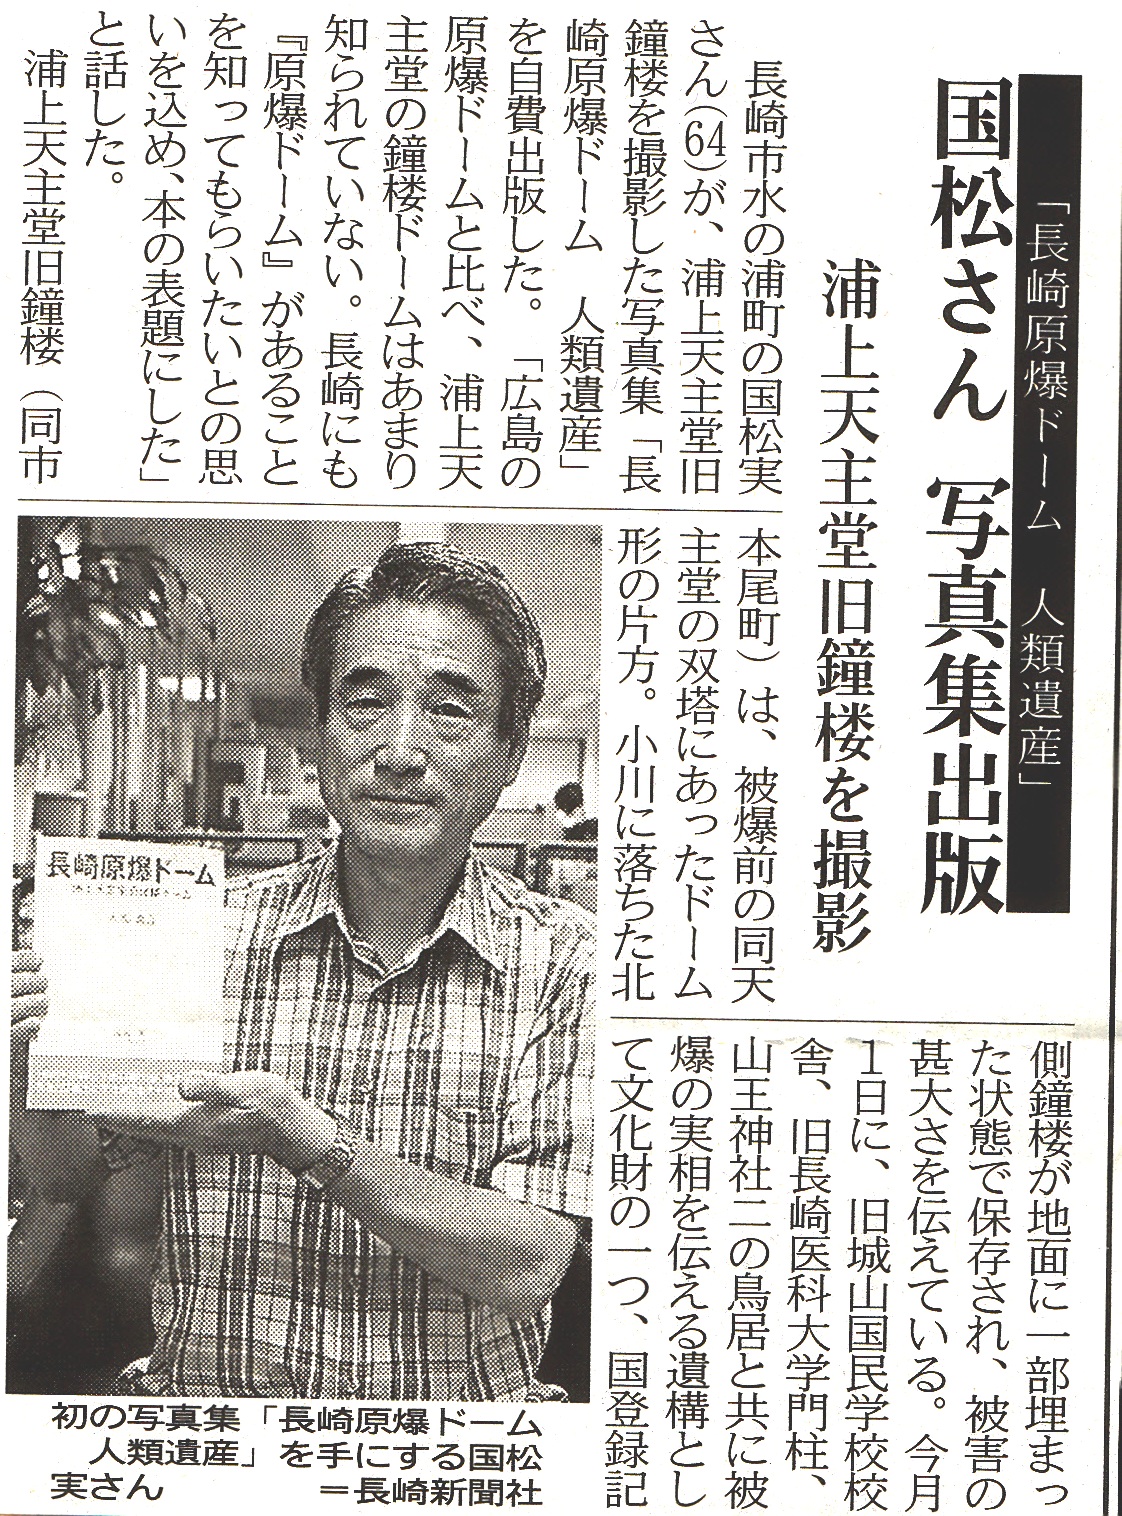 「長崎原爆ドーム　人類遺産」
国松さん　写真集出版
浦上天主堂旧鐘楼を撮影
長崎市水の浦町の国松実
さん（64）が、浦上天主堂旧
鐘楼を撮影した写真集「長
崎原爆ドーム　人類遺産」
を自費出版した。「広島の
原爆ドームと比べ、浦上天
主堂の鐘楼ドームはあまり
知られていない。長崎にも
『原爆ドーム』があること
を知ってもらいたいとの思
いを込め、本の表題にした」
と話した。
浦上天主堂旧鐘楼（同市
本尾町）は、被爆前の同天
主堂の双塔にあったドーム
形の片方。小川に落ちた北
側鐘楼が地面に一部埋まっ
た状態で保存され、被害の
甚大さを伝えている。今月
1日に、旧城山国民学校校
舎、旧長崎医科大学門柱、
山王神社二の鳥居と共に被
爆の実相を伝える遺構とし
て文化財の一つ、国登録記
長崎原爆ドーム
初の写真集「長崎原爆ドーム
人類遺産」を手にする国松
実さん　＝長崎新聞社